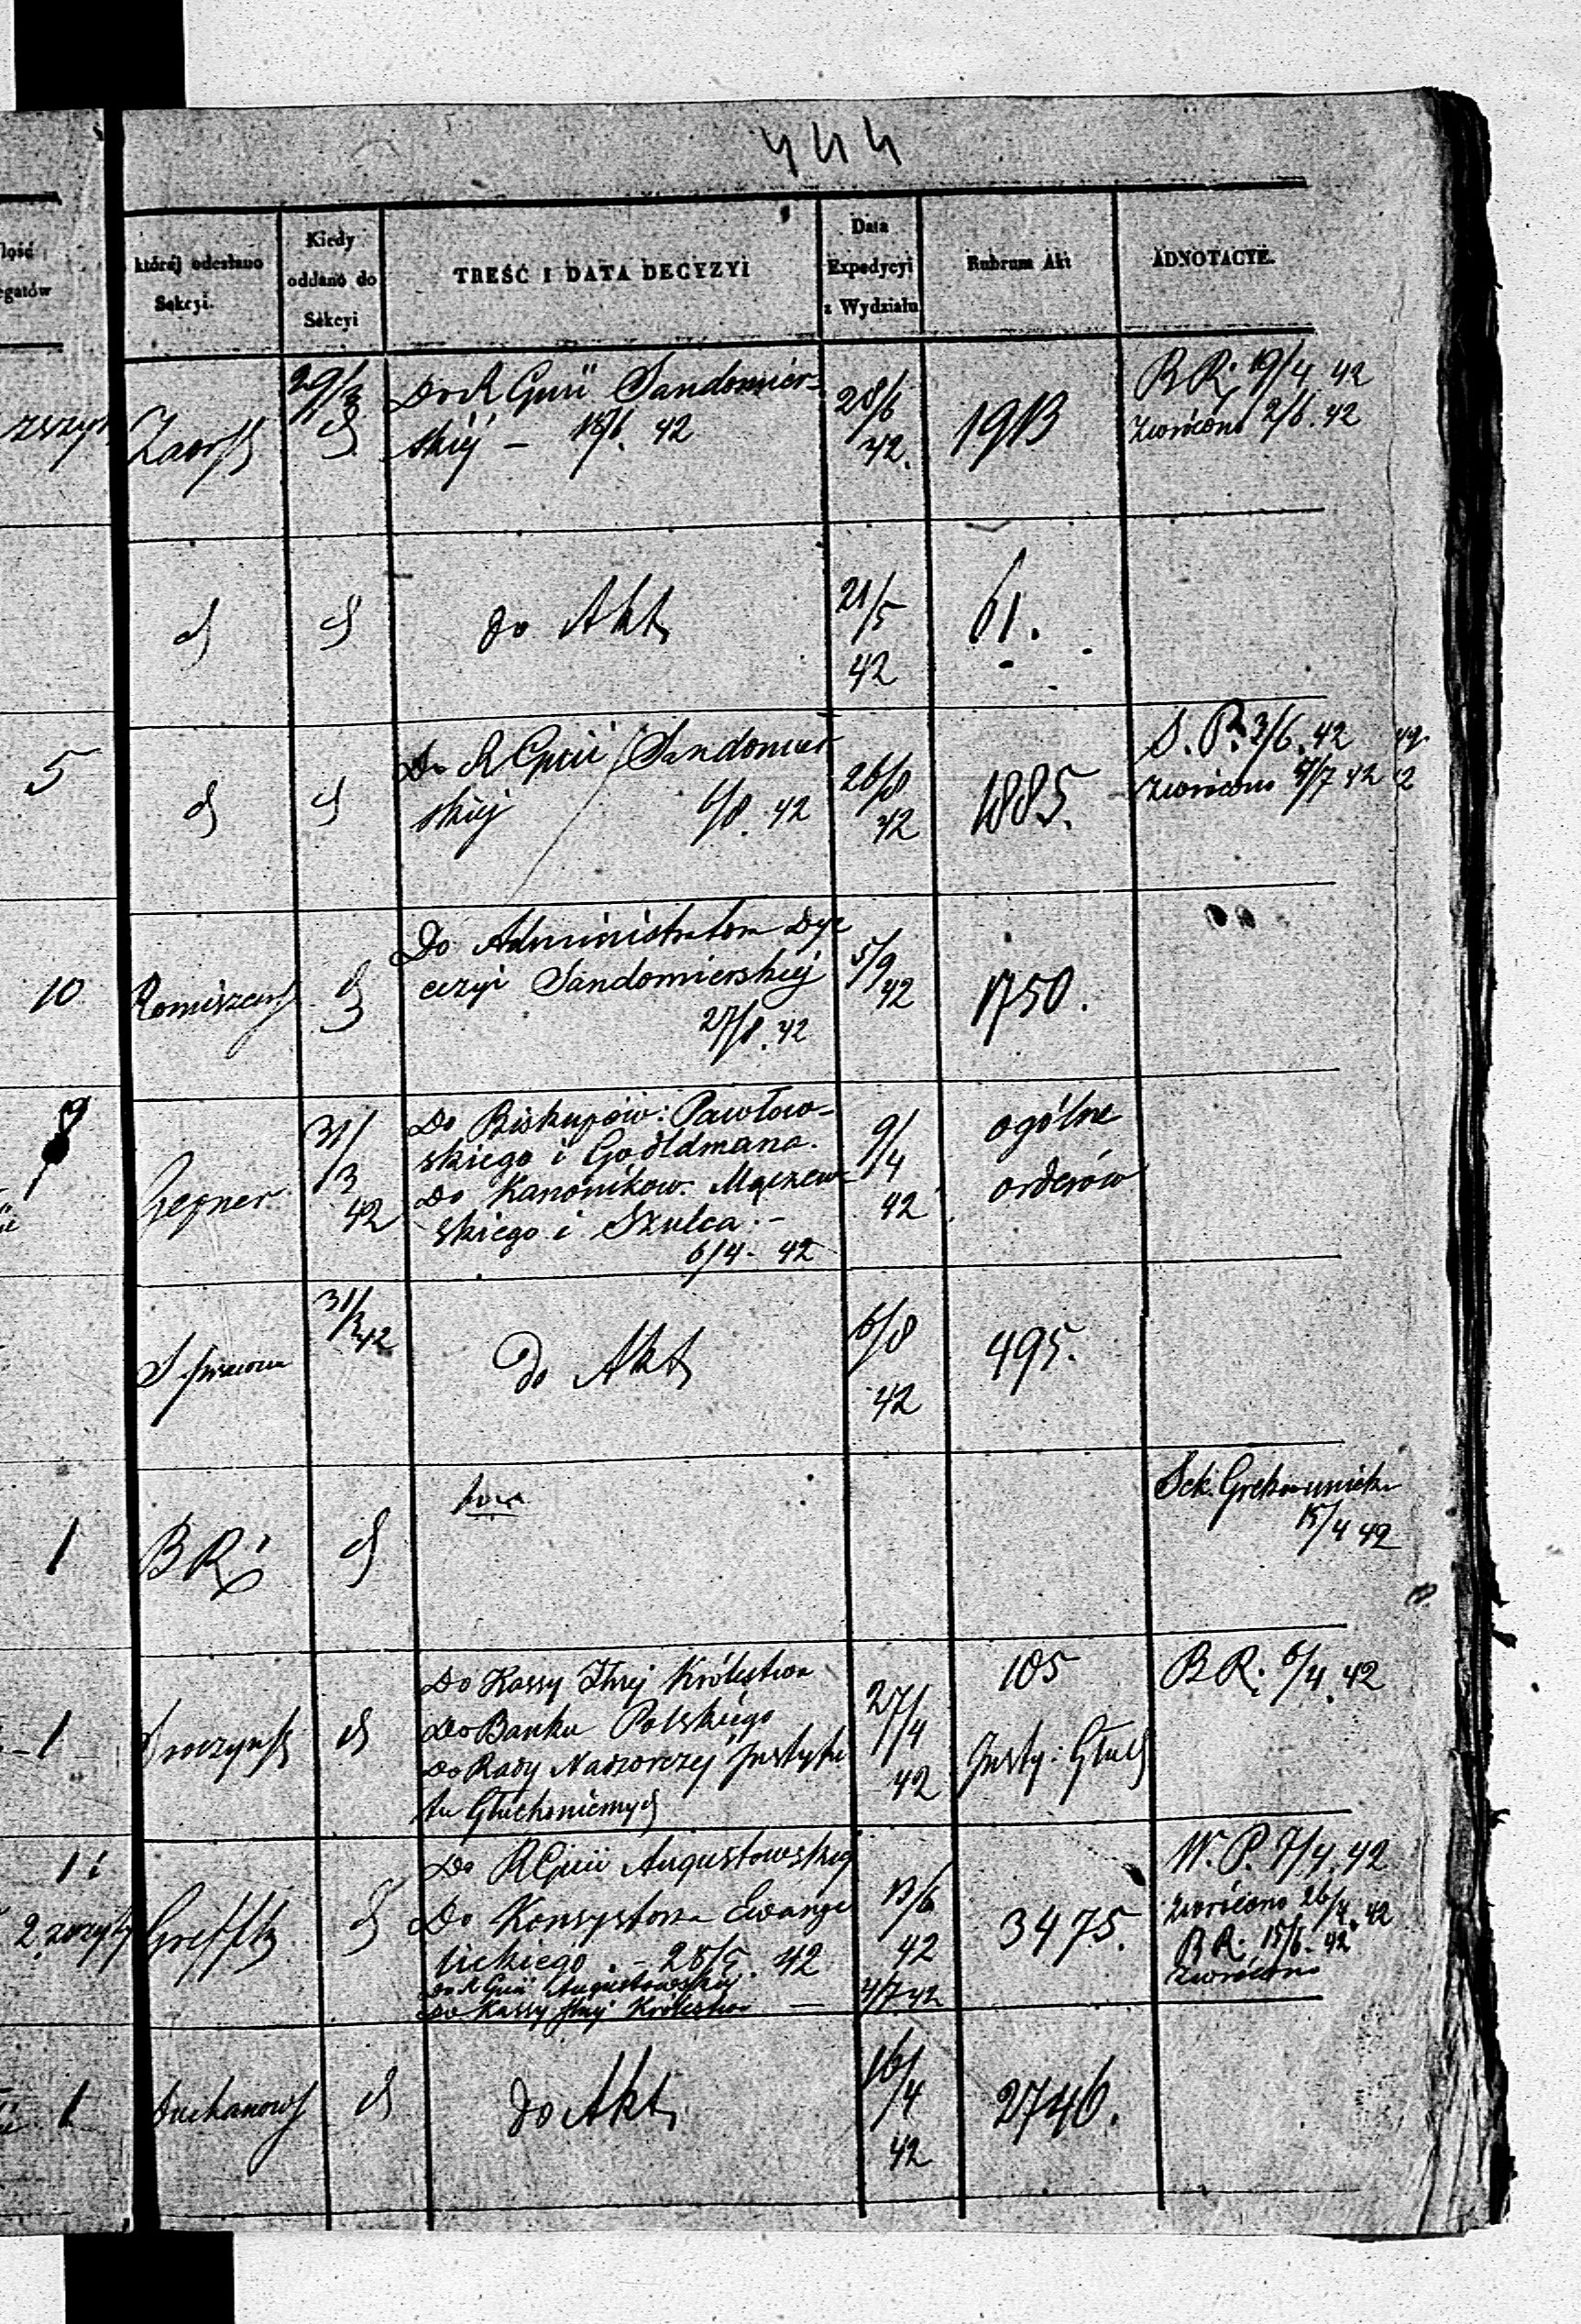 444
Ilość
egatów
któréj odesłano
Sekcyi.
Kiedy
oddano do
Sekcyi
TREŚĆ I DATA DECYZYI
Data
Expedycyi
z Wydziału
Rubrum Akt
ADNOTACYE.
29/3
Do R Gnii Sandomier-
skiéj – 18/6. 42
28/6
42.
1913
BR. 19/4 42
zwrócono 2/6. 42
do Akt
21/5
42
61.
5
Do R Gnii Sandomier
skiéj 6/8. 42
26/8
42
1885.
S. P. 3/6. 42
zwrócono 4/7 42
10
Do Administratora Dye
cezyi Sandomierskiéj
27/8. 42
5/9
42
1750.
9
Gepner
31/
3
42
Do Biskupów: Pawłow-
skiego i Goldmana.
Do Kanoników: Mączew-
skiego i Szulca. –
6/4 – 42
9/
4
42
ogólne
orderów
S. prawna
31/3 42
do Akt
6/8
42
495.
1
BR.
Sek. Greko unicka
15/4 42
1
Do Kassy Głnéj Królestwa
Do Banku Polskiego
Do Rady Nadzorczéj Instytu
tu Głuchoniemych
27/
4
42
105
Insty: Głuch
BR. 6/4. 42
2 zeszyty
Do R Gnii Augustowskiéj
Do Konsystorza Ewange
lickiego. – 28/5. 42
Do R Gnii Augustowskiéj
Do Kassy Głnéj Królestwa –
13/6
42
4/7 42
3475.
W. P. 7/4. 42
zwrócono 26/4. 42
BR. 15/6. 42
zwrócono
1
do Akt
16/
4
42
2746.